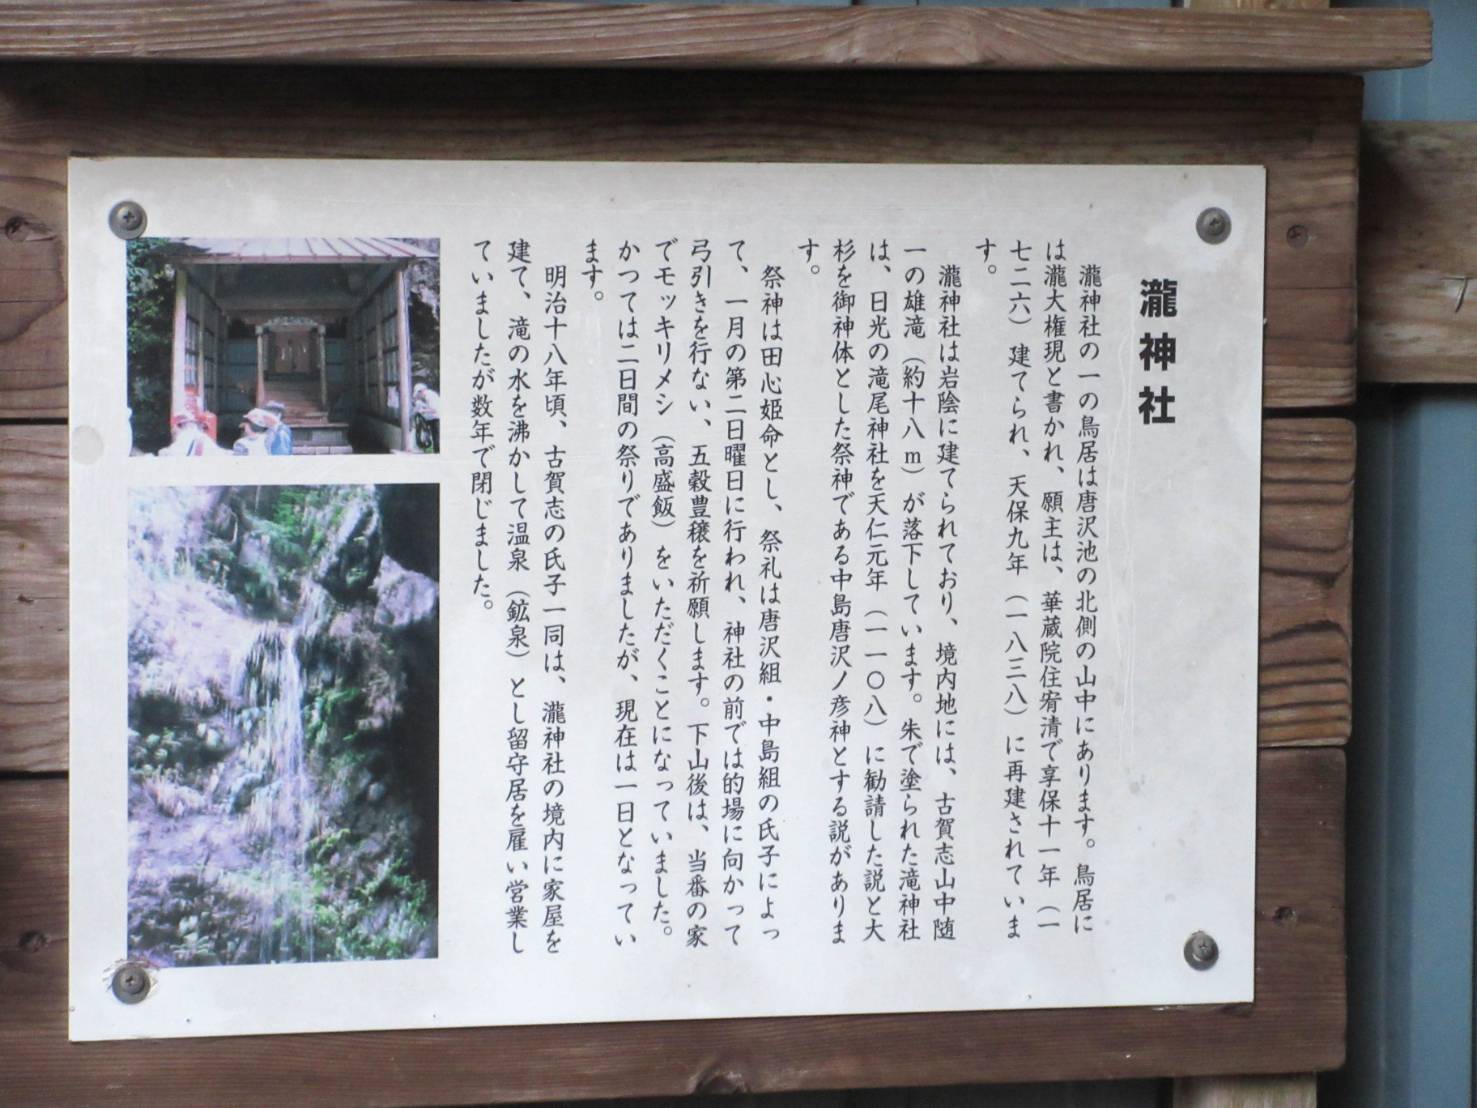 瀧神社
瀧神社の一の鳥居は唐沢池の北側の山中にあります。鳥居に
は瀧大権現と書かれ、願主は、華蔵院住宥清で享保十一年（一
七二六）建てられ、天保九年（一八三八）に再建されていま
す。
瀧神社は岩陰に建てられており、境内地には、古賀志山中随
一の雄滝（約十八ｍ）が落下しています。朱で塗られた滝神社
は、日光の滝尾神社を天仁元年（一一〇八）に勧請した説と大
杉を御神体とした祭神である中島唐沢ノ彦神とする説がありま
す。
祭神は田心姫命とし、祭礼は唐沢組・中島組の氏子によっ
て、一月の第二日曜日に行われ、神社の前では的場に向かって
弓引きを行ない、五穀豊穣を祈願します。下山後は、当番の家
でモッキリメシ（高盛飯）をいただくことになっていました。
かつては二日間の祭りでありましたが、現在は一日となってい
ます。
明治十八年頃、古賀志の氏子一同は、瀧神社の境内に家屋を
建て、滝の水を沸かして温泉（鉱泉）とし留守居を雇い営業し
ていましたが数年で閉じました。